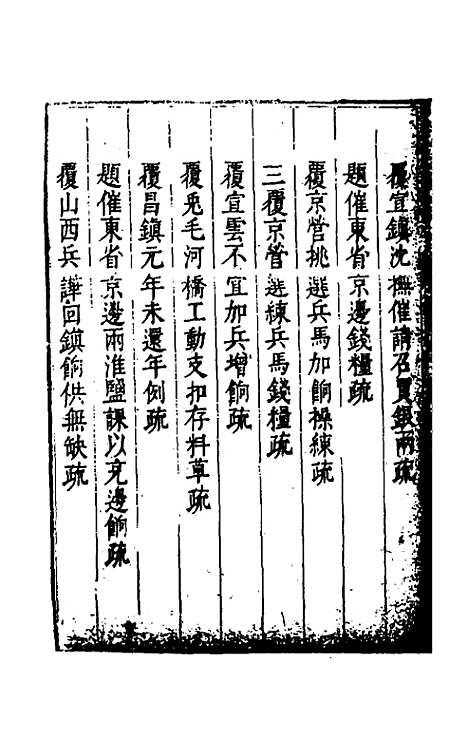 覆宣鎮沈撫催請召買銀兩疏
題催東省京邊錢糧疏
覆京營挑選兵馬加餉操練疏
三覆京營選練兵馬錢糧疏
覆宣雲不宜加兵增餉疏
覆兎毛河橋工動支扣存料草疏
覆昌鎮元年未還年例疏
題催東省京邊兩淮鹽課以充邊餉疏
覆山西兵譁回鎮餉供無缺疏